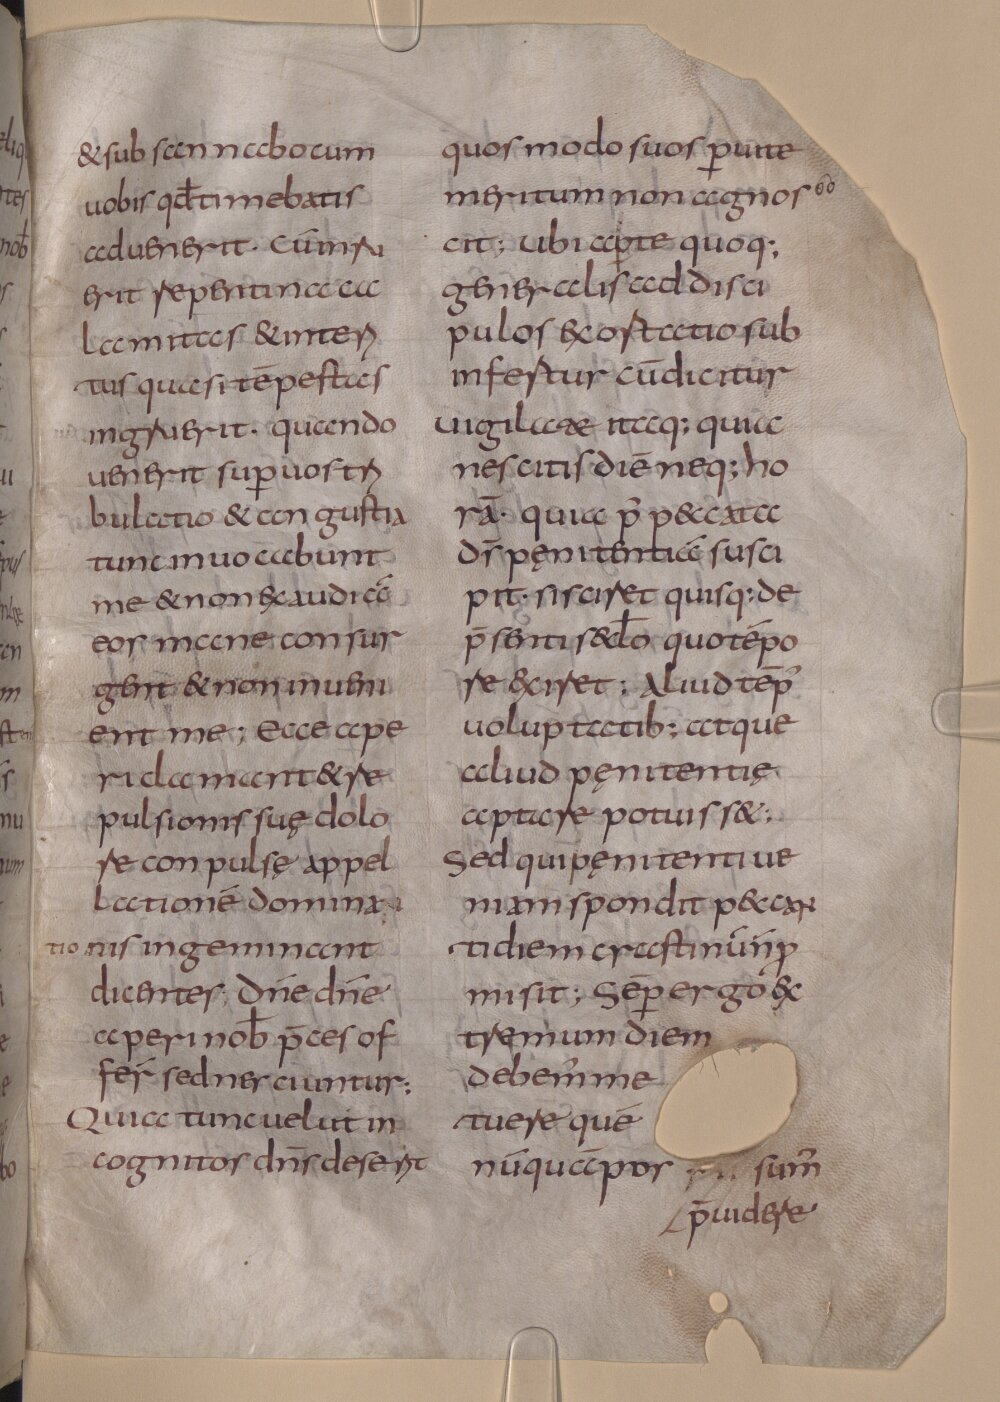 & subsannabo cum
uobis qđ timebatis
aduenerit. Cūinru
erit repentina ca
lamitas & interi
tus quasi tēpestas
ingruerit. quando
uenerit sup uos tri
bulatio & angustia
tunc inuocabunt
me & non exaudiā
eos mane consur
gent & non inueni
ent me; Ecce ape
ri clamant & re
pulsionis suę dolo
re conpulsę appel
lationē domina
tionis ingeminant
dicentes; Dn̄e dn̄e
aperi nob̄ p̄ces of
fer̄ sed nerciuntur;
Quia tunc uelut in
cognitos dn̄s deserit
quos modo suos p uitę
meritum non agnos
cit; ubi apte quoq;
generalis ad disci
pulos exortatio sub
infertur cū dicitur
uigilate itaq; quia
nescitis diē neq; ho
rā. quia p̄ peccata
ds̄ pęnitentiā susci
pit. si sciret quisq; de
p̄senti sec̄lo quo tēpo
re exiret; Aliud tēp̄
uoluptatib; atque
aliud pęnitentię
aptare potuiss&;
Sed qui pęnitenti ue
niam spondit peccan
ti diem crastinū n̄ p
misit; Sēp ergo ex
tremum diem
debem̄ me
tuere quē
nūquā pos sum̄
p̄uidere
60